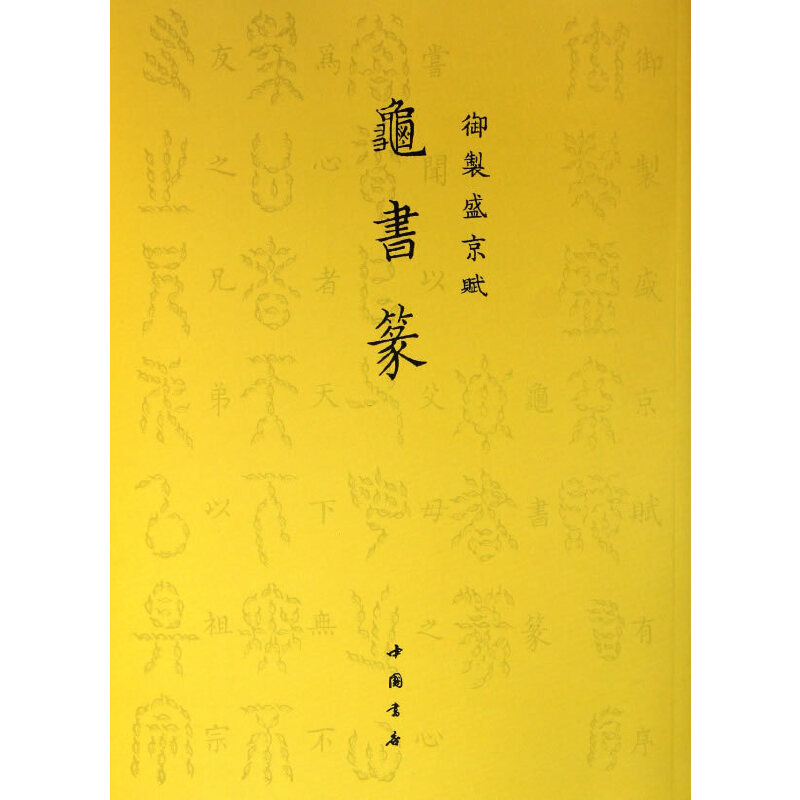 御製盛京賦
龜書篆
中國書店
御製盛京賦有序
龜書篆
嘗聞以父母之心
爲心者天下無不
友之兄弟以祖宗